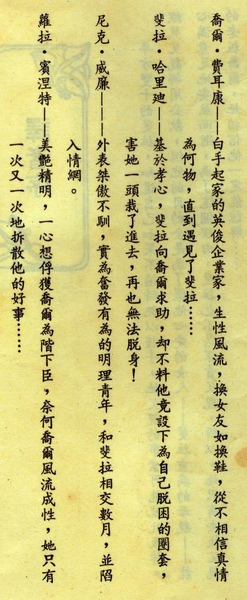 喬爾·費耳康——白手起家的英俊企業家，生性風流，換女友如換鞋，從不相信真情
為何物，直到遇見了斐拉……
斐拉·哈里迪——基於孝心，斐拉向喬爾求助，却不料他竟設下為自己脫困的圈套，
害她一頭栽了進去，再也無法脫身！
尼克·威廉——外表桀傲不馴，實為奮發有為的明理青年，和斐拉相交數月，並陷
入情網。
蘿拉·賓涅特——美艷精明，一心想俘獲喬爾為階下臣，奈何喬爾風流成性，她只有
一次又一次地拆散他的好事……